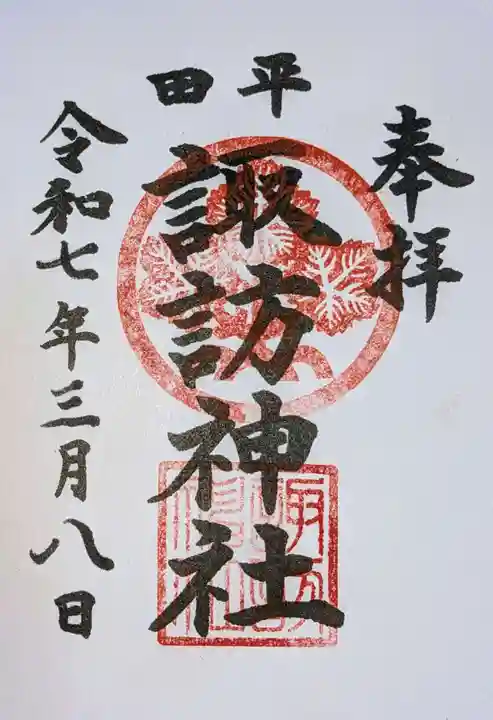 奉拝
平田
諏訪神社
令和七年三月八日